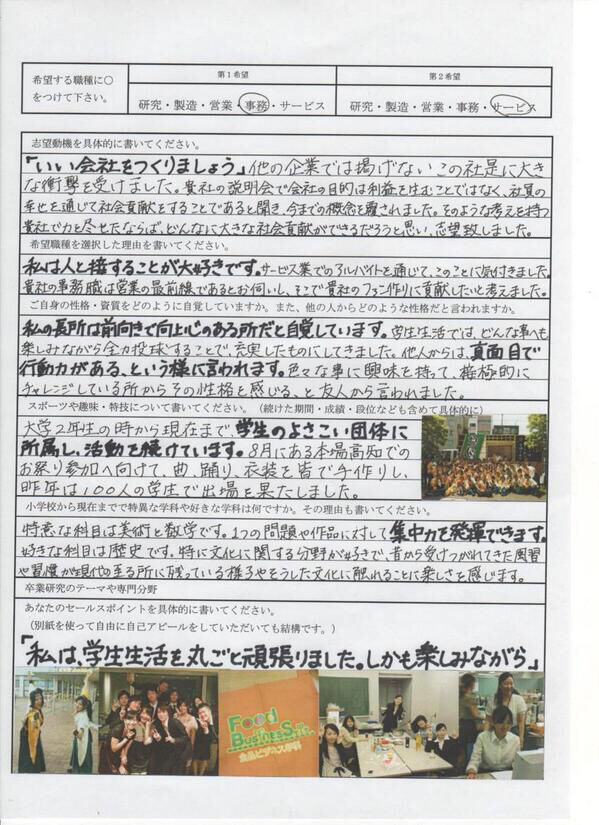 希望する職種に○
をつけて下さい。
第1希望
第2希望
研究・製造・営業・事務・サービス
研究・製造・営業・事務・サービス
志望動機を具体的に書いてください。
「いい会社をつくりましょう」他の企業では掲げないこの社是に大き
な衝撃を受けました。貴社の説明会で会社の目的は利益を生むことではなく、社員の
幸せを通じて社会貢献をすることであると聞き、今までの概念を覆されました。そのような考えを持つ
貴社で力を尽せたならば、どんなに大きな社会貢献ができるだろうと思い、志望致しました。
希望職種を選択した理由を書いてください。
私は人と接することが大好きです。サービス業でのアルバイトを通じて、このことに気付きました。
貴社の事務職は営業の最前線であるとお伺いし、そこで貴社のファン作りに貢献したいと考えました。
ご自身の性格・資質をどのように自覚していますか。また、他の人からどのような性格だと言われますか。
私の長所は前向きで向上心のある所だと自覚しています。学生生活では、どんな事へも
楽しみながら全力投球することで、充実したものにしてきました。他人からは、真面目で
行動力がある、という様に言われます。色々な事に興味を持って、積極的に
チャレンジしている所からその性格を感じる、と友人から言われました。
スポーツや趣味・特技について書いてください。(続けた期間・成績・段位なども含めて具体的に)
大学2年生の時から現在まで学生のよさこい団体に
所属し、活動を続けています。8月にある本場高知での
お祭り参加へ向けて、曲、踊り、衣装を皆で手作りし、
昨年は100人の学生で出場を果たしました。
小学校から現在までで特異な学科や好きな学科は何ですか。その理由も書いてください。
特意な科目は美術と数学です。1つの問題や作品に対して集中力を発揮できます。
好きな科目は歴史です。特に文化に関する分野が好きで、昔から受けつがれてきた風習
や習慣が現代の至る所に残っている様子やそうした文化に触れることに楽しさを感じます。
卒業研究のテーマや専門分野
あなたのセールスポイントを具体的に書いてください。
(別紙を使って自由に自己アピールをしていただいても結構です。)
「私は、学生生活を丸ごと頑張りました。しかも楽しみながら」
Food
Business
食品ビジネス学科